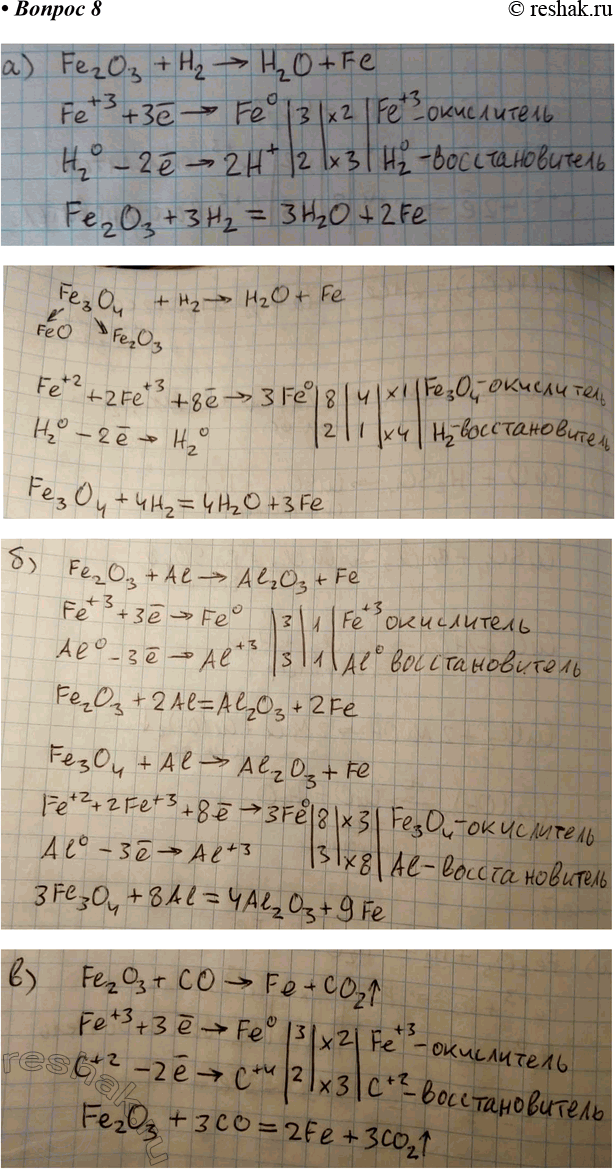 • Вопрос 8
© reshak.ru
а) Fe₂O₃ + H₂ → H₂O + Fe
Fe⁺³ + 3ē → Fe⁰ | 3 | ×2 | Fe⁺³-окислитель
H₂⁰ - 2ē → 2H⁺ | 2 | ×3 | H₂⁰-восстановитель
Fe₂O₃ + 3H₂ = 3H₂O + 2Fe
Fe₃O₄ + H₂ → H₂O + Fe
↙ ↘
FeO Fe₂O₃
Fe⁺² + 2Fe⁺³ + 8ē → 3Fe⁰ | 8 | 4 | ×1 | Fe₃O₄-окислитель
H₂⁰ - 2ē → H₂⁰ | 2 | 1 | ×4 | H₂-восстановитель
Fe₃O₄ + 4H₂ = 4H₂O + 3Fe
б) Fe₂O₃ + Al → Al₂O₃ + Fe
Fe⁺³ + 3ē → Fe⁰ | 3 | 1 | Fe⁺³ окислитель
Al⁰ - 3ē → Al⁺³ | 3 | 1 | Al⁰ восстановитель
Fe₂O₃ + 2Al = Al₂O₃ + 2Fe
Fe₃O₄ + Al → Al₂O₃ + Fe
Fe⁺² + 2Fe⁺³ + 8ē → 3Fe⁰ | 8 | ×3 | Fe₃O₄-окислитель
Al⁰ - 3ē → Al⁺³ | 3 | ×8 | Al-восстановитель
3Fe₃O₄ + 8Al = 4Al₂O₃ + 9Fe
в) Fe₂O₃ + CO → Fe + CO₂↑
Fe⁺³ + 3ē → Fe⁰ | 3 | ×2 | Fe⁺³-окислитель
C⁺² - 2ē → C⁺⁴ | 2 | ×3 | C⁺²-восстановитель
Fe₂O₃ + 3CO = 2Fe + 3CO₂↑
reshak.ru